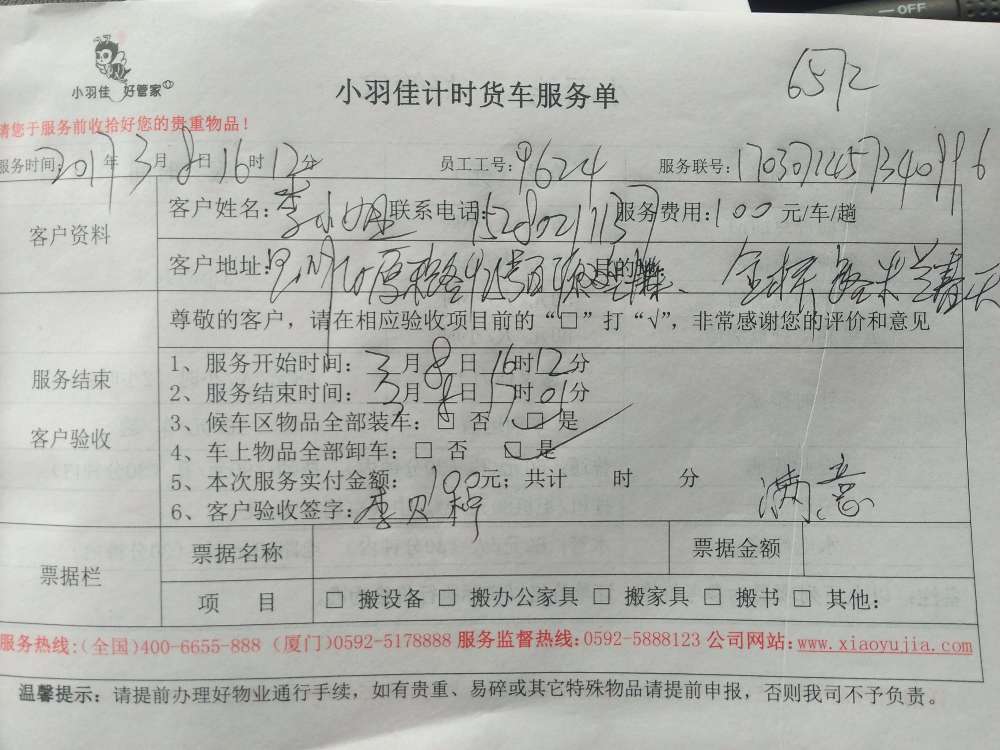 OFF
小羽佳 好管家
小羽佳计时货车服务单
6572
请您于服务前收拾好您的贵重物品！
服务时间：2017年3月8日16时12分 员工工号：9624 服务联号：
客户资料
客户姓名：李小姐 联系电话： 服务费用：100元/车/趟
客户地址： 目的地：
尊敬的客户，请在相应验收项目前的“□”打“√”，非常感谢您的评价和意见
服务结束
客户验收
1、服务开始时间：3月8日16时12分
2、服务结束时间：3月8日17时01分
3、候车区物品全部装车：□ 否 □ 是
4、车上物品全部卸车：□ 否 □ 是
5、本次服务实付金额：100元；共计 时 分
6、客户验收签字：李贝 满意
票据栏
票据名称 票据金额
项 目 □ 搬设备 □ 搬办公家具 □ 搬家具 □ 搬书 □ 其他：
服务热线:(全国)400-6655-888 (厦门)0592-5178888 服务监督热线:0592-5888123 公司网站:www.xiaoyujia.com
温馨提示：请提前办理好物业通行手续，如有贵重、易碎或其它特殊物品请提前申报，否则我司不予负责。